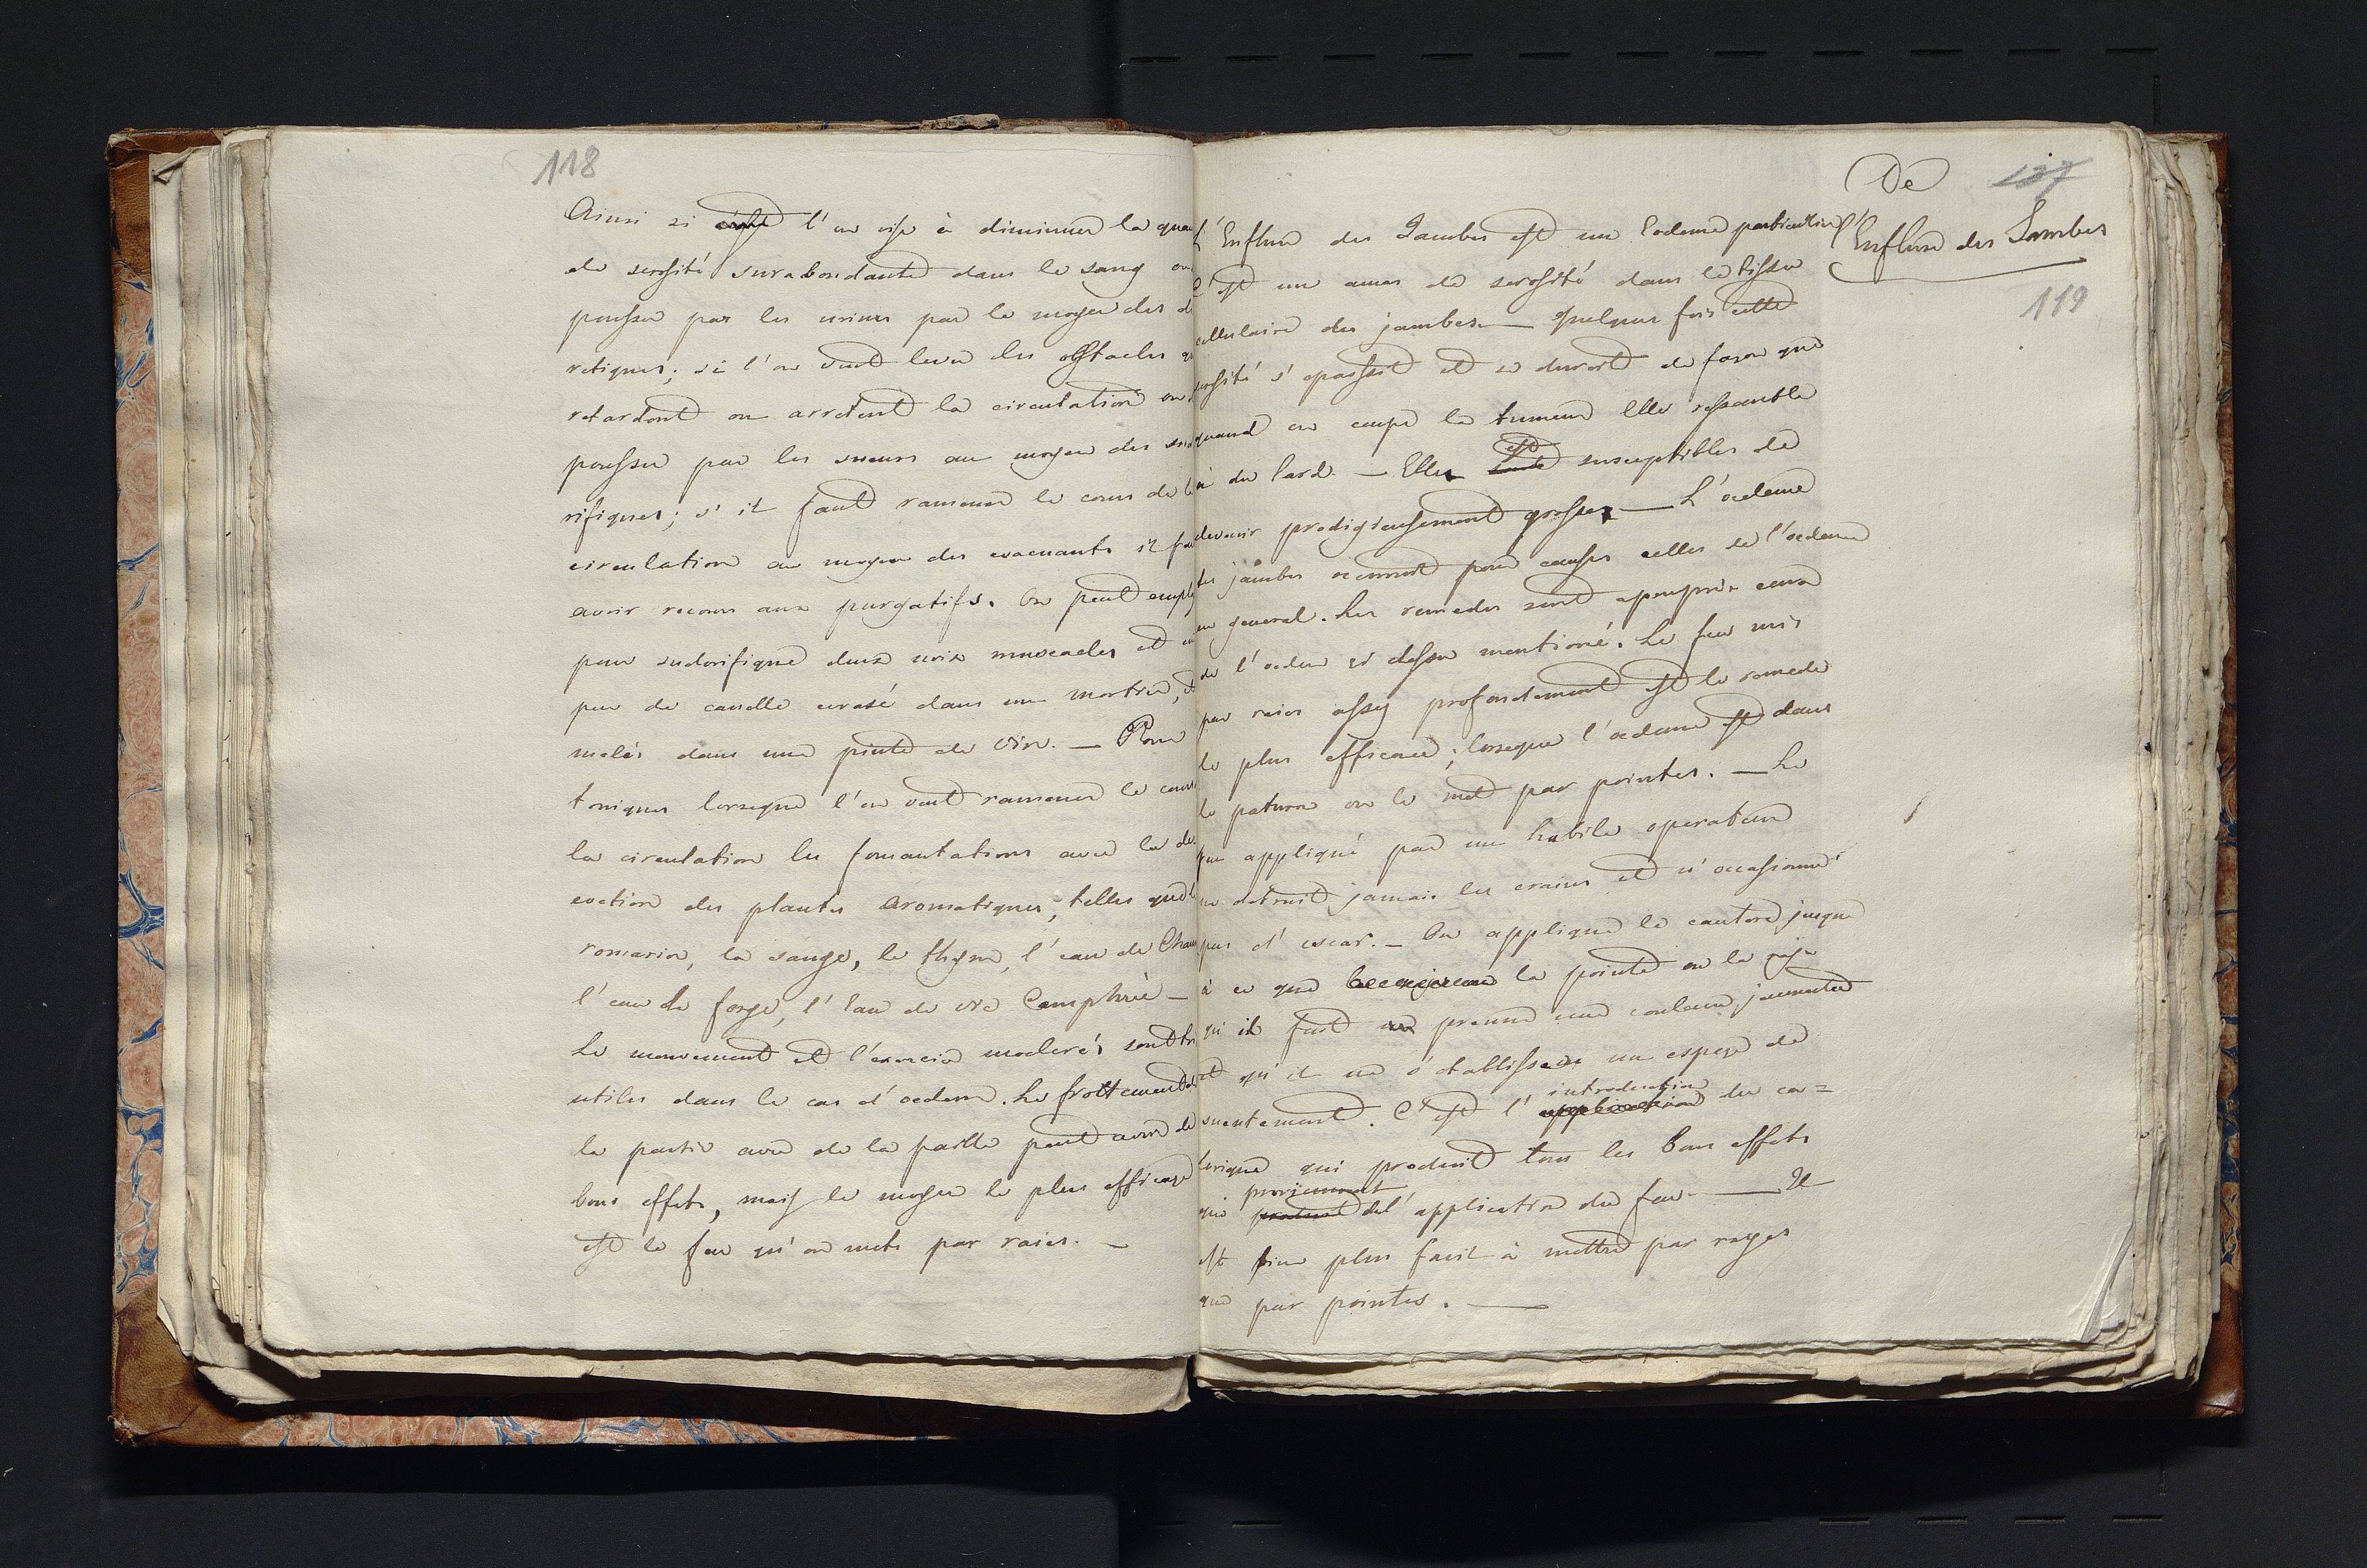 118
Ainsi si l'on vise à diminuer la qua
de serosité surabondante dans le sang on
pousse par les urines par le moyen des di
retiques; si l'on veut lever les obstacles qu
retardent ou arretent la circulation on
pousse par les sueurs au moyen des sud
rifiques; s'il faut ramener le cours de la
circulation au moyen des evacuants il fau
avoir recours aux purgatifs. On peut emplo
pour sudorifique deux noix muscades et un
peu de canelle ecrasé dans un mortier, et
melés dans une pinte de vin. — Pour
toniques lorsque l'on veut ramener le cours
la circulation les fomentations avec la de
coction des plantes aromatiques, telles que le
romarin, la sauge, le thym, l'eau de Chau
l'eau de forge, l'eau de vie Camphrée —
Le mouvement et l'exercice moderés sont tr
utiles dans le cas d'oedeme. Le frottement de
la partie avec de la paille peut avoir de
bons effets, mais le moyen le plus efficace
est le feu qu'on mets par raies. —
De 137
l'Enflure des Jambes
119
L'Enflure des Jambes est un Eodeme particulier
C'est un amas de serosité dans le tissu
cellulaire des jambes. — Quelques fois cette
serosité s'epaissit et se durcit de façon que
quand on coupe la tumeur Elle ressemble
à du lard. — Elle est susceptibles de
devenir prodigieusement grosse — L'oedeme
des jambes reconnoit pour causes celles de l'oedeme
en general. Les remedes sont apeuprès ceux
de l'oedeme ci dessu mentioné. Le feu mis
par raies assez profondement est le remede
le plus efficace; lorsque l'oedeme est dans
le paturon on le met par pointes. — Le
feu appliqué par un habile operateur
ne detruit jamais les crains et n'occasionne
pas d'escar. — On applique le cautere jusque
à ce que la pointe ou la raje
qu'il fait prenne une couleur jaunatre
et qu'il ne s'etablisse un espece de
suentement. C'est l'introduction du ca=
lorique qui produit tous les bons effets
qui proviennent del'application du feu. — Il
est bien plus facil à mettre par rayes
que par pointes. —